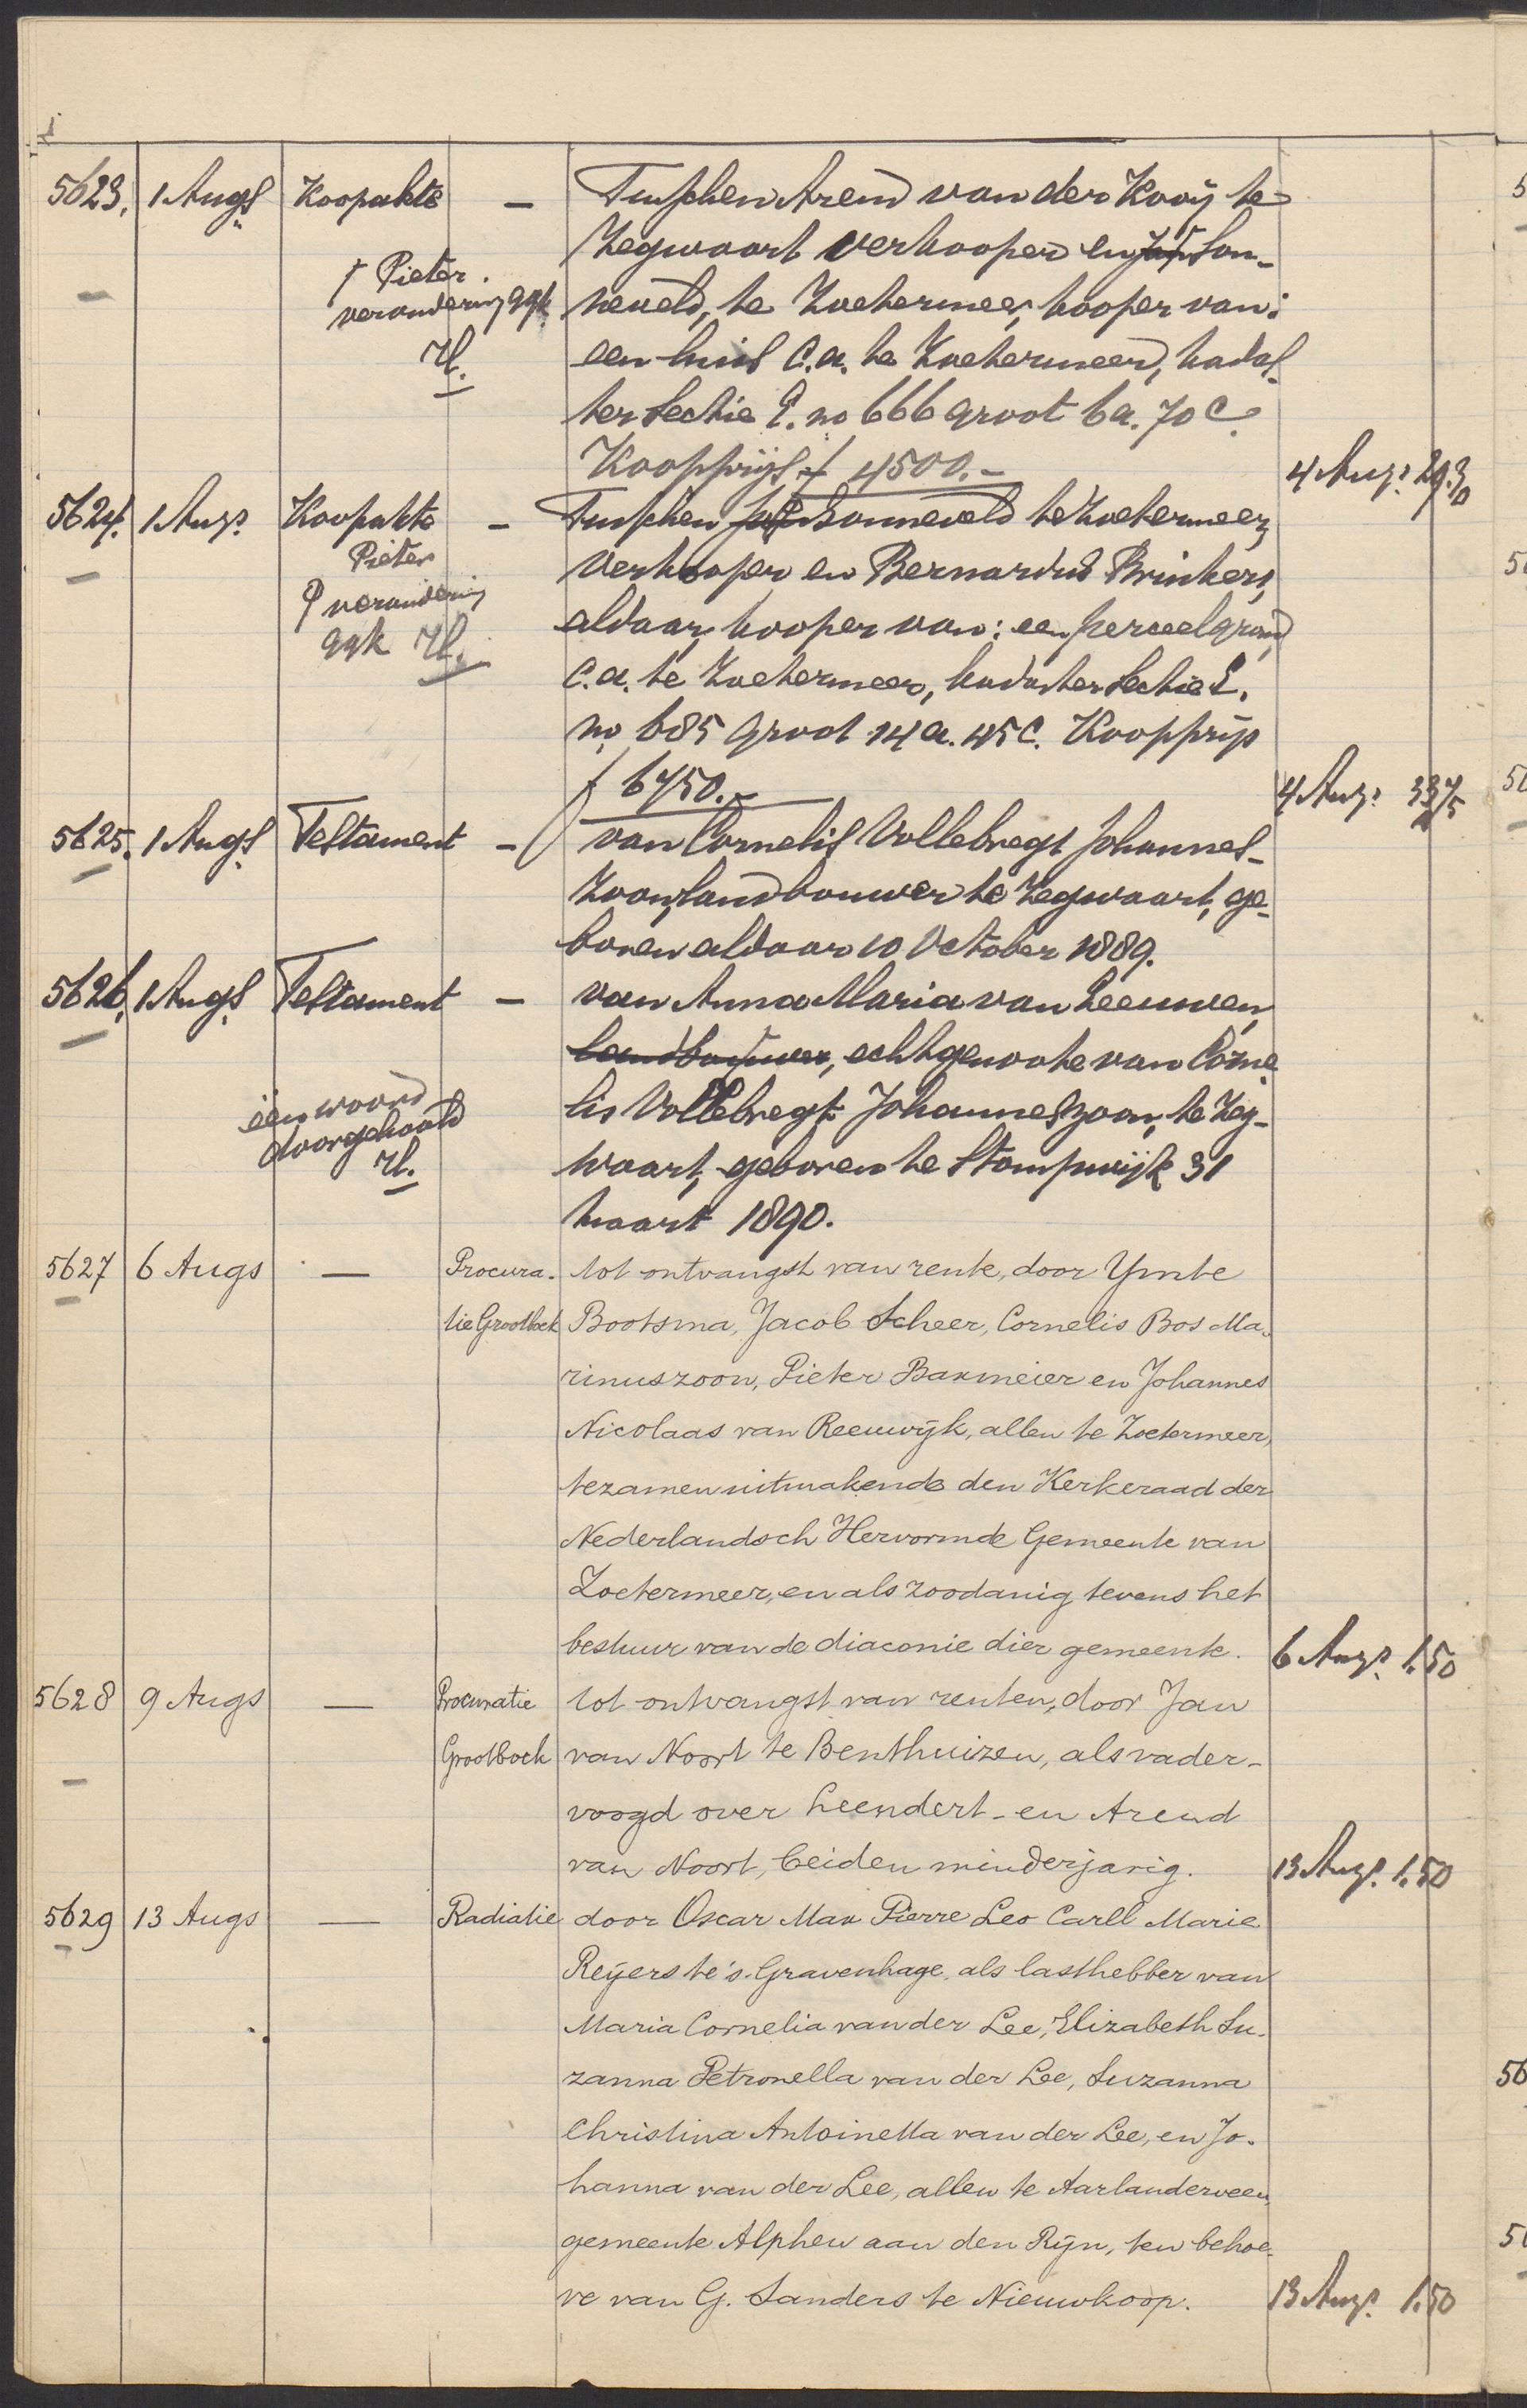 5623. 1 Augs Koopakte — Tusschen Arend van der Kooij te
Zegwaart verkooper en Jan Son-
† Pieter.
verandering ggk
H.
neveld, te Zoetermeer, kooper van:
een huis c.a. te Zoetermeer, kadas-
ter Sectie E. no 666 groot 6 a. 70 c.
Koopprijs f 4500.- 4 Augs. 29.30
5624. 1 Augs. Koopakte — Tusschen Jan Sonneveld te Zoetermeer,
Pieter
† verandering
ggk H.
verkooper en Bernardus Brinkers,
aldaar, kooper van: een perceel grond
c.a. te Zoetermeer, kadaster Sectie E.
no 685 groot 14 a. 45 c. Koopprijs
f 6750.- 4 Augs.
5625. 1 Augs. Testament — van Cornelis Vollebregt Johannes-
zoon, landbouwer te Zegwaart, ge-
boren aldaar 10 October 1889.
5626. 1 Augs. Testament — van Anna Maria van Leeuwen,
landbouwer, echtgenoote van Corne
één woord
doorgehaald
H.
lis Vollebregt Johanneszoon, te Zeg-
waart, geboren te Stompwijk 31
maart 1890.
5627 6 Augs — Procura- tot ontvangst van rente, door Ymte
tie Grootboek Bootsma, Jacob Scheer, Cornelis Bos Ma-
rinuszoon, Pieter Bakmeier en Johannes
Nicolaas van Reeuwijk, allen te Zoetermeer,
tezamen uitmakende den Kerkeraad der
Nederlandsch Hervormde Gemeente van
Zoetermeer, en als zoodanig tevens het
bestuur van de diaconie dier gemeente. 6 Augs. 1.50
5628 9 Augs — Procuratie tot ontvangst van renten, door Jan
Grootboek van Noort te Benthuizen, als vader-
voogd over Leendert - en Arend
van Noort, beiden minderjarig. 13 Augs. 1.50
5629 13 Augs — Radiatie door Oscar Max Pierre Leo Carll Marie
Reijers te 's-Gravenhage, als lasthebber van
Maria Cornelia van der Lee, Elizabeth Su-
zanna Petronella van der Lee, Suzanna
Christina Antoinetta van der Lee, en Jo-
hanna van der Lee, allen te Aarlanderveen,
gemeente Alphen aan den Rijn, ten behoe-
ve van G. Sanders te Nieuwkoop. 13 Augs. 1.50